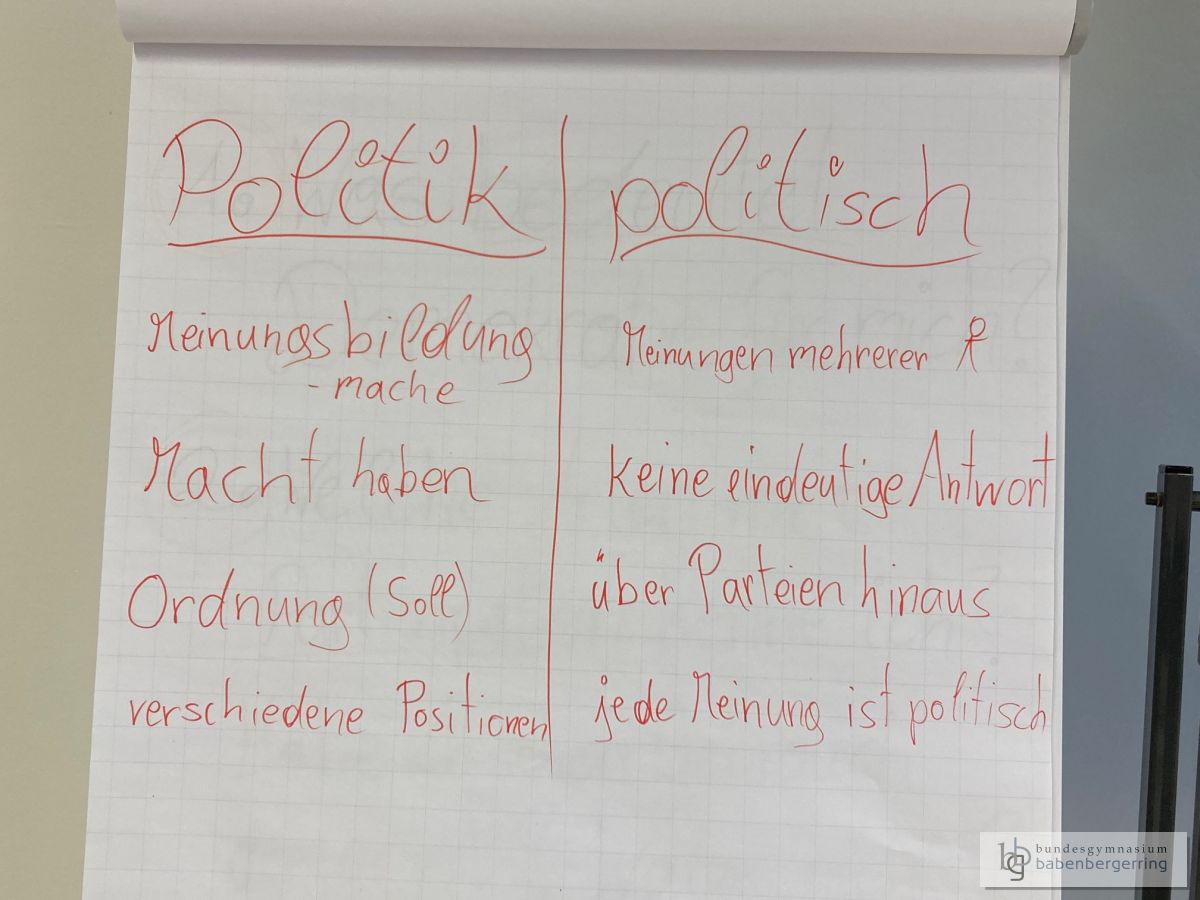 Politik
Meinungsbildung
-mache
Macht haben
Ordnung (Soll)
verschiedene Positionen
politisch
Meinungen mehrerer
keine eindeutige Antwort
über Parteien hinaus
jede Meinung ist politisch
bg bundesgymnasium
babenbergerring